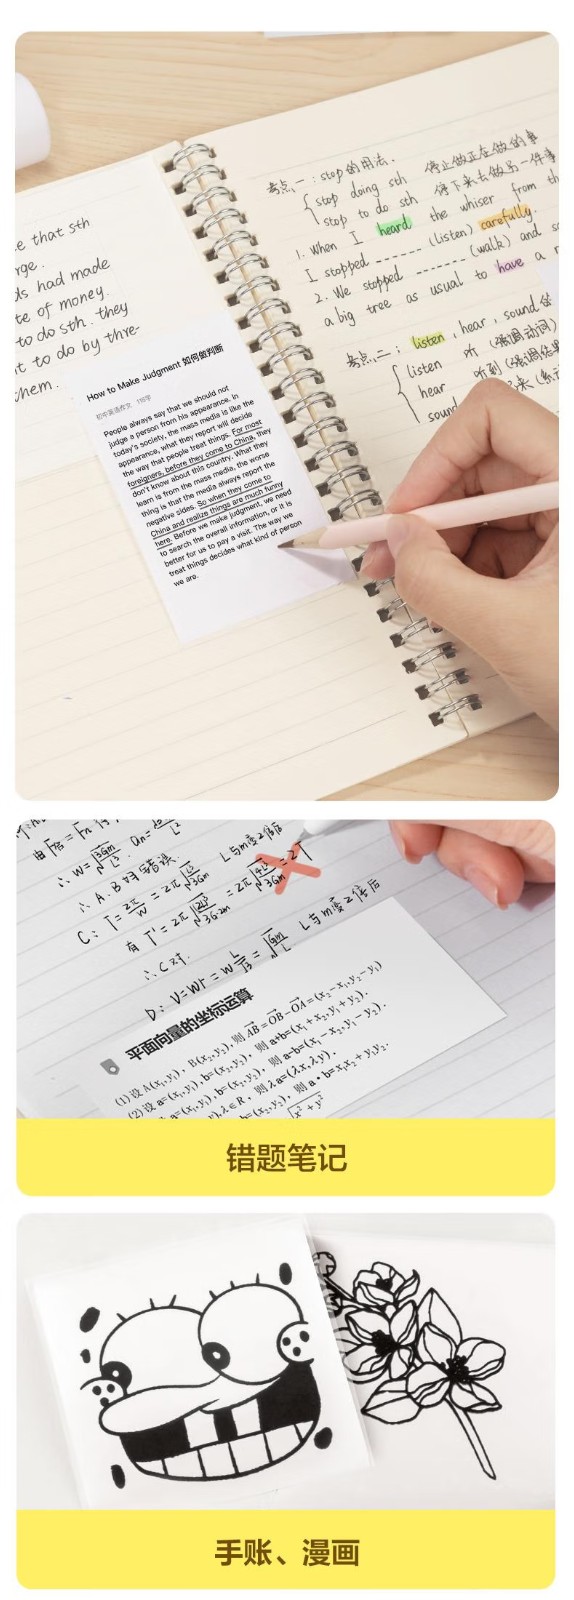 e that sth
rge.
ds had made
te of money.
to do sth. they
t to do by thre-
hem.
How to Make Judgment 如何做判断
初中英语作文
People always say that we should not
judge a person from his appearance. In
today's society, the mass media is like the
appearance, what they report will decide
the way that people treat things. For most
foreigners, before they come to China, they
don't know about this country. What they
learn is from the mass media, the worse
thing is that the media always report the
negative sides. So when they come to
China and realize things are much funny
here. Before we make judgment, we need
to search the overall information, or it is
better for us to pay a visit. The way we
treat things decides what kind of person
we are.
考点一：stop的用法.
stop doing sth 停止做正在做的事
stop to do sth 停下来去做另一件事
1. When I heard the whiser from th
I stopped ------- (listen) carefully.
2. We stopped ------- (walk) and so
a big tree as usual to have a r
考点二：listen, hear, sound
listen 听 (强调动词)
hear 听到 (强调结果
sound
∴ A.B 好错误
L与m变2倍后
有
L与m变2倍后
∴ C对.
平面向量的坐标运算
(1) 设 A(x₁,y₁), B(x₂,y₂), 则 AB=OB-OA=(x₂-x₁,y₂-y₁)
(2) 设 a=(x₁,y₁), b=(x₂,y₂), 则 a+b=(x₁+x₂,y₁+y₂).
a=(x₁,y₁), b=(x₂,y₂), 则 a-b=(x₁-x₂,y₁-y₂).
y), λ∈R, 则 λa=(λx,λy).
则 a·b=x₁x₂+y₁y₂.
错题笔记
手账、漫画